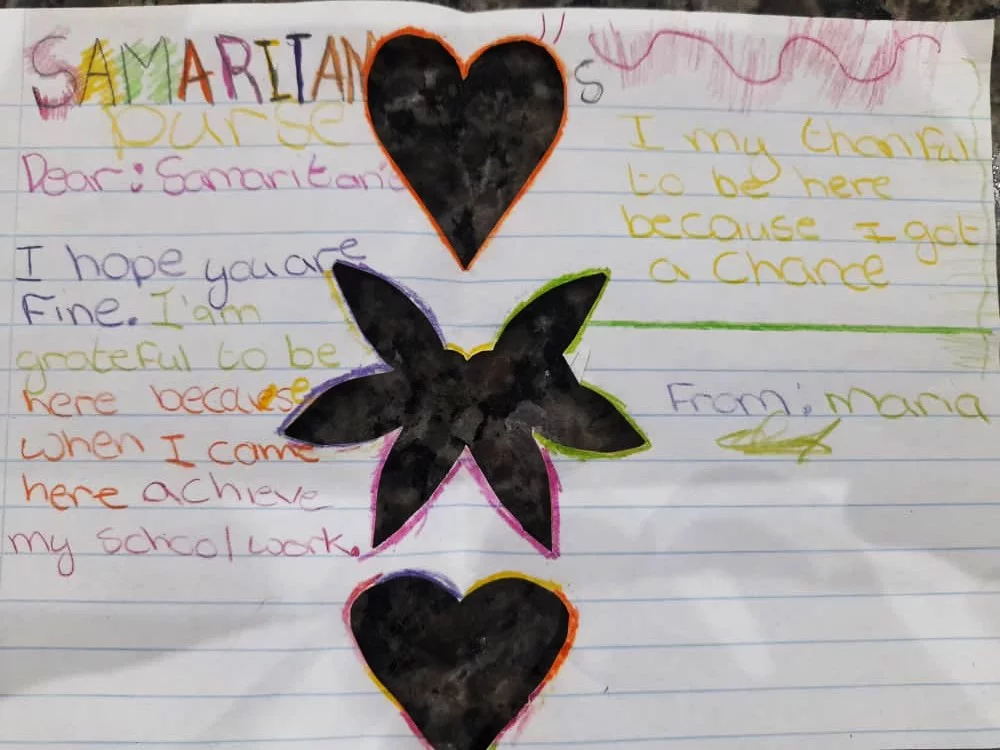 SAMARITAN's
purse
Dear: Samaritan's
I hope you are
Fine. I'am
grateful to be
here because
when I came
here achieve
my school work.
I my thankful
to be here
because I got
a Chance
From: maria